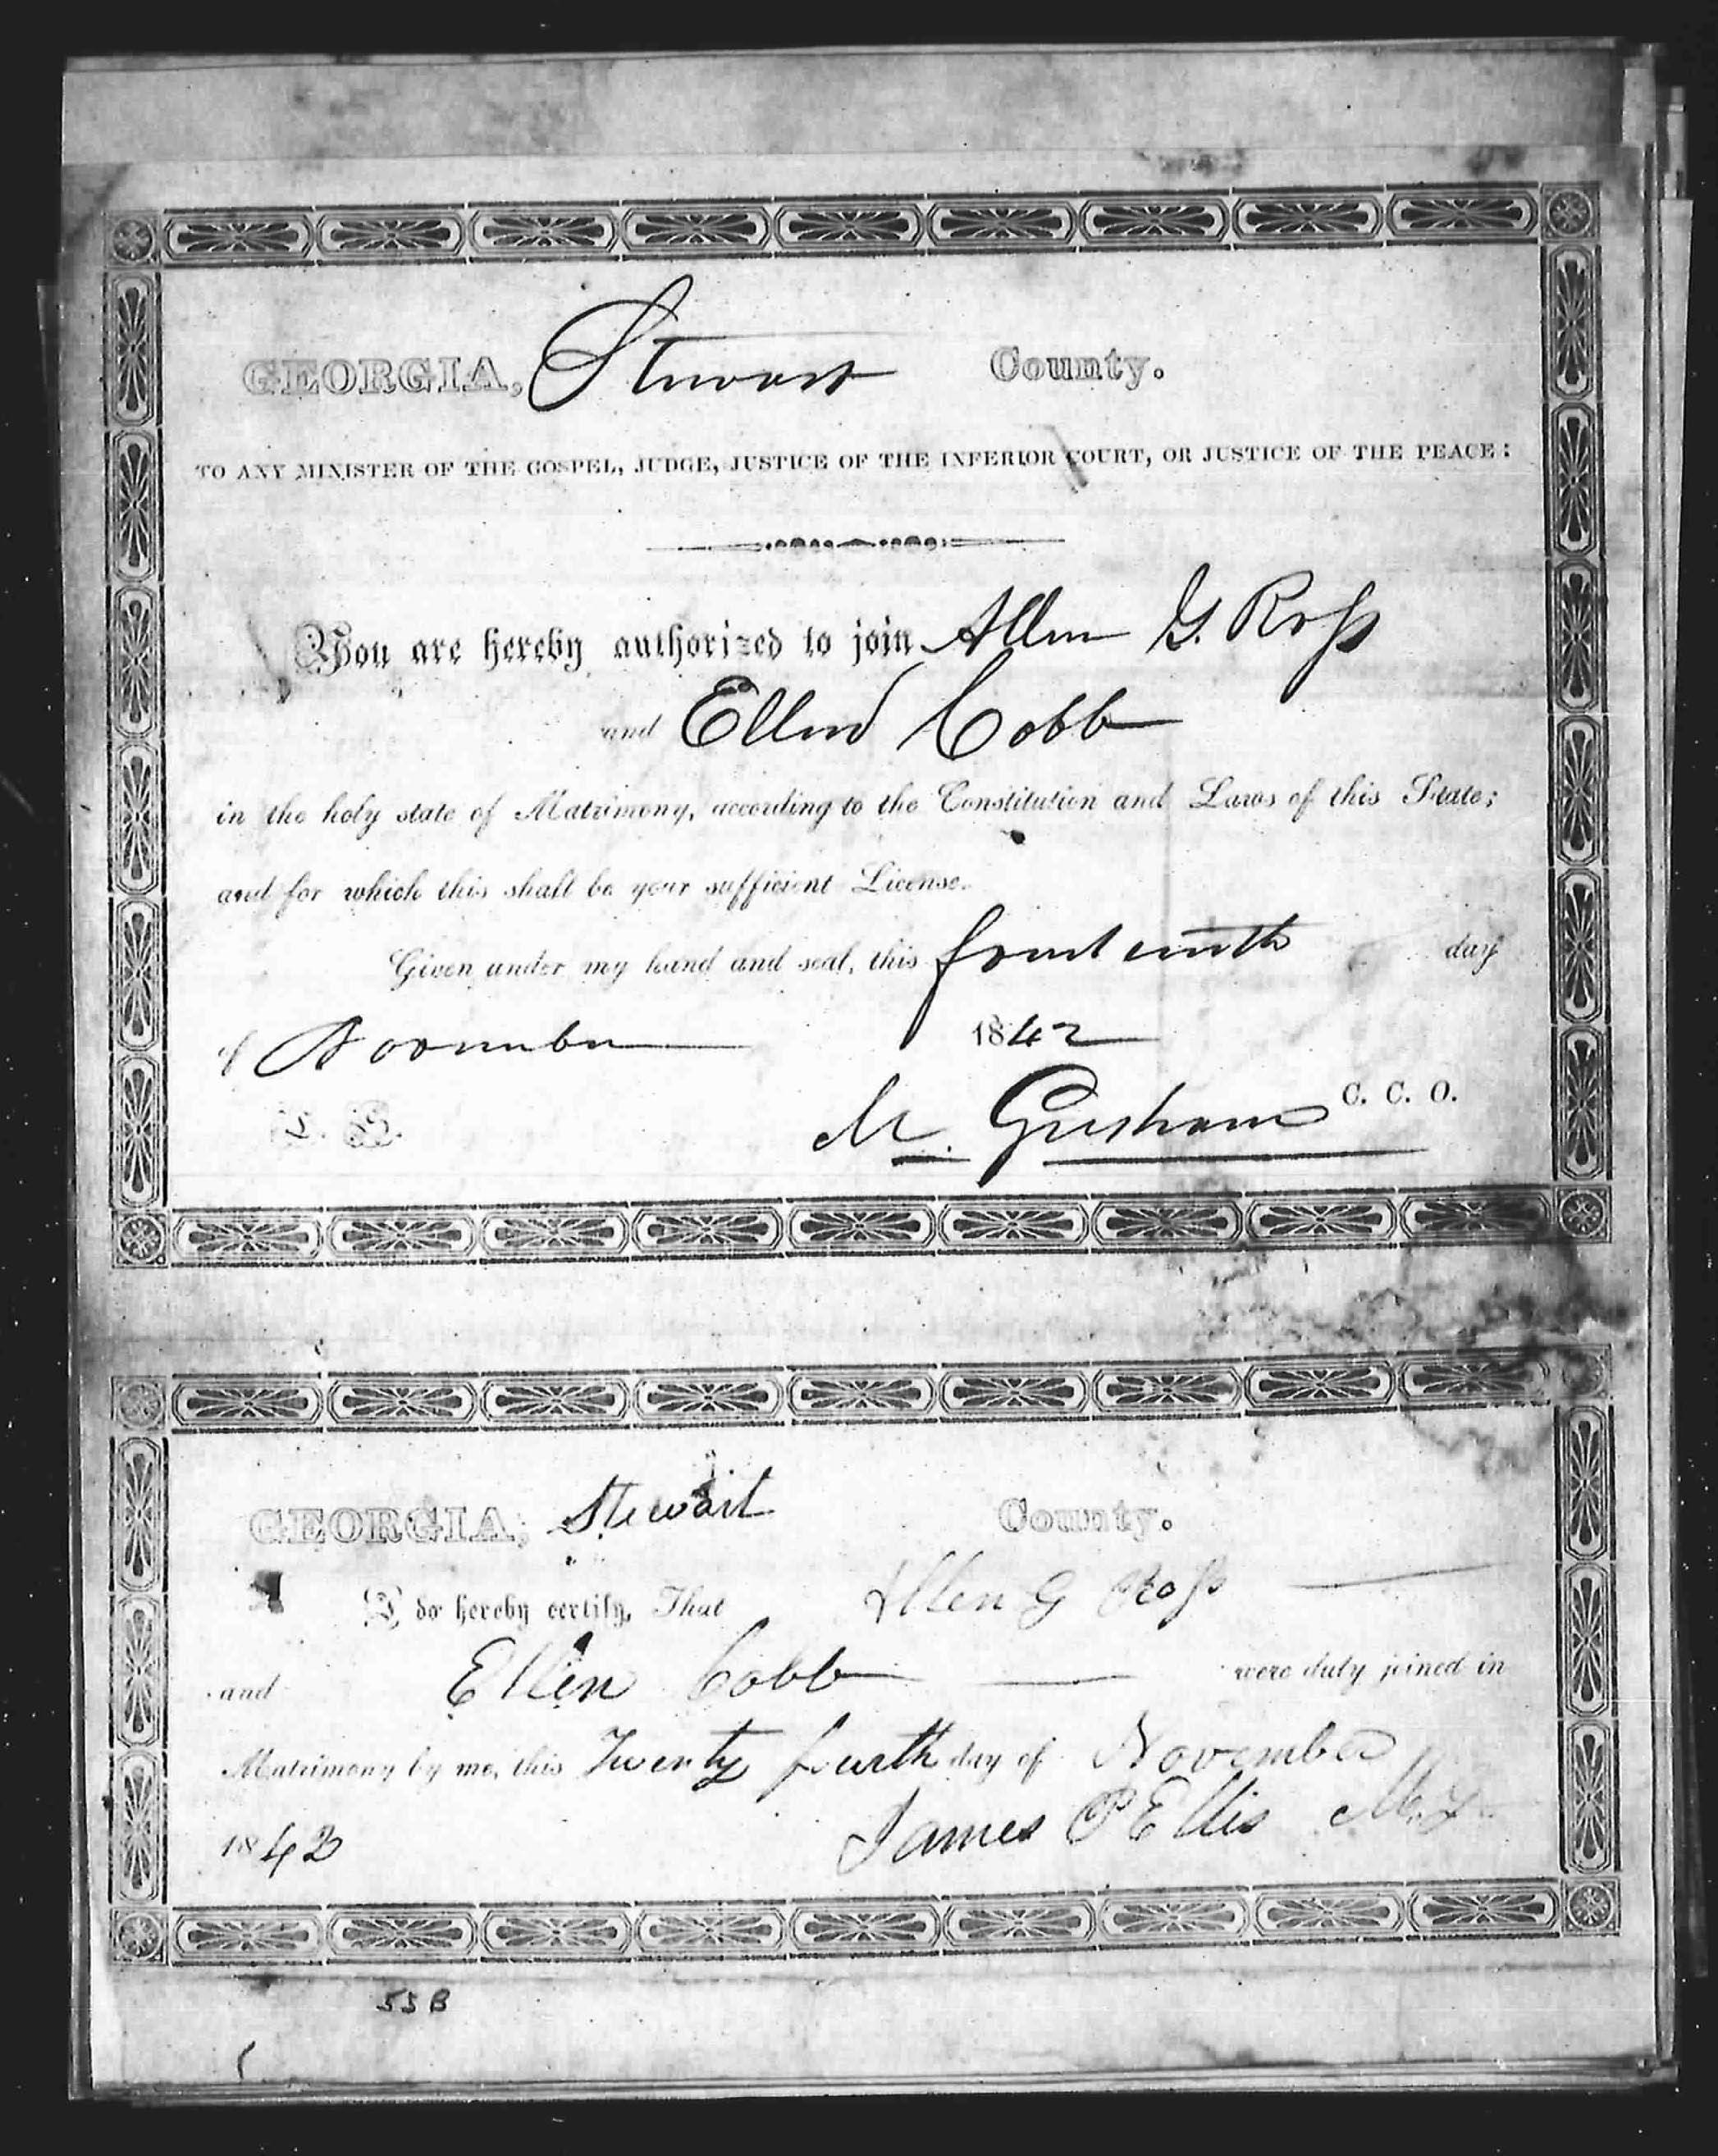 GEORGIA, Stewart County.
TO ANY MINISTER OF THE GOSPEL, JUDGE, JUSTICE OF THE INFERIOR COURT, OR JUSTICE OF THE PEACE:
You are hereby authorized to join Allen G. Ross
and Ellen Cobb
in the holy state of Matrimony, according to the Constitution and Laws of this State;
and for which this shall be your sufficient License.
Given under my hand and seal, this fourteenth day
of November 1842
L. S. M. Gresham C. C. O.
GEORGIA, Stewart County.
I, do hereby certify, That Allen G Ross
and Ellen Cobb were duly joined in
Matrimony by me, this Twenty fourth day of November
1842 James P Ellis
55 B